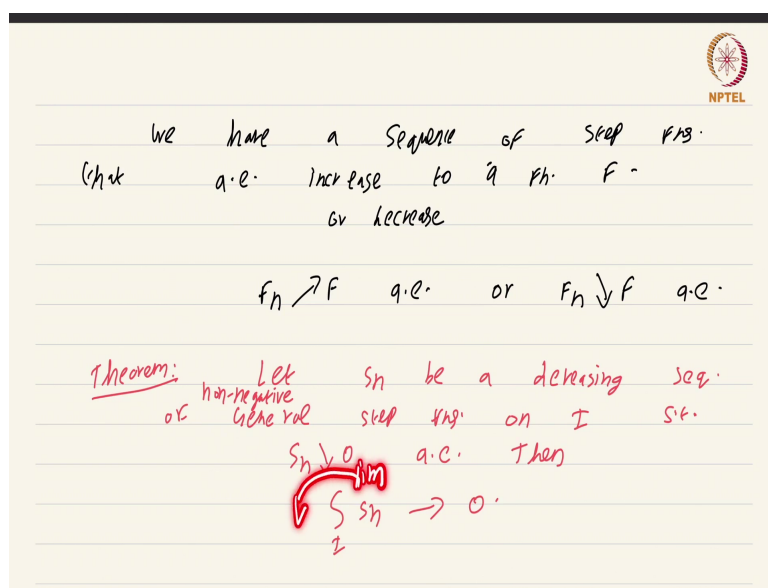 NPTEL
We have a sequence of step fns.
that a.e. increase to a fn. F.
or decrease
Fn ↗ F a.e. or Fn ↘ F a.e.
Theorem: Let Sn be a decreasing seq.
non-negative
of General step fns. on I s.t.
Sn ↓ 0 a.e. Then
lim
∫ Sn → 0.
I